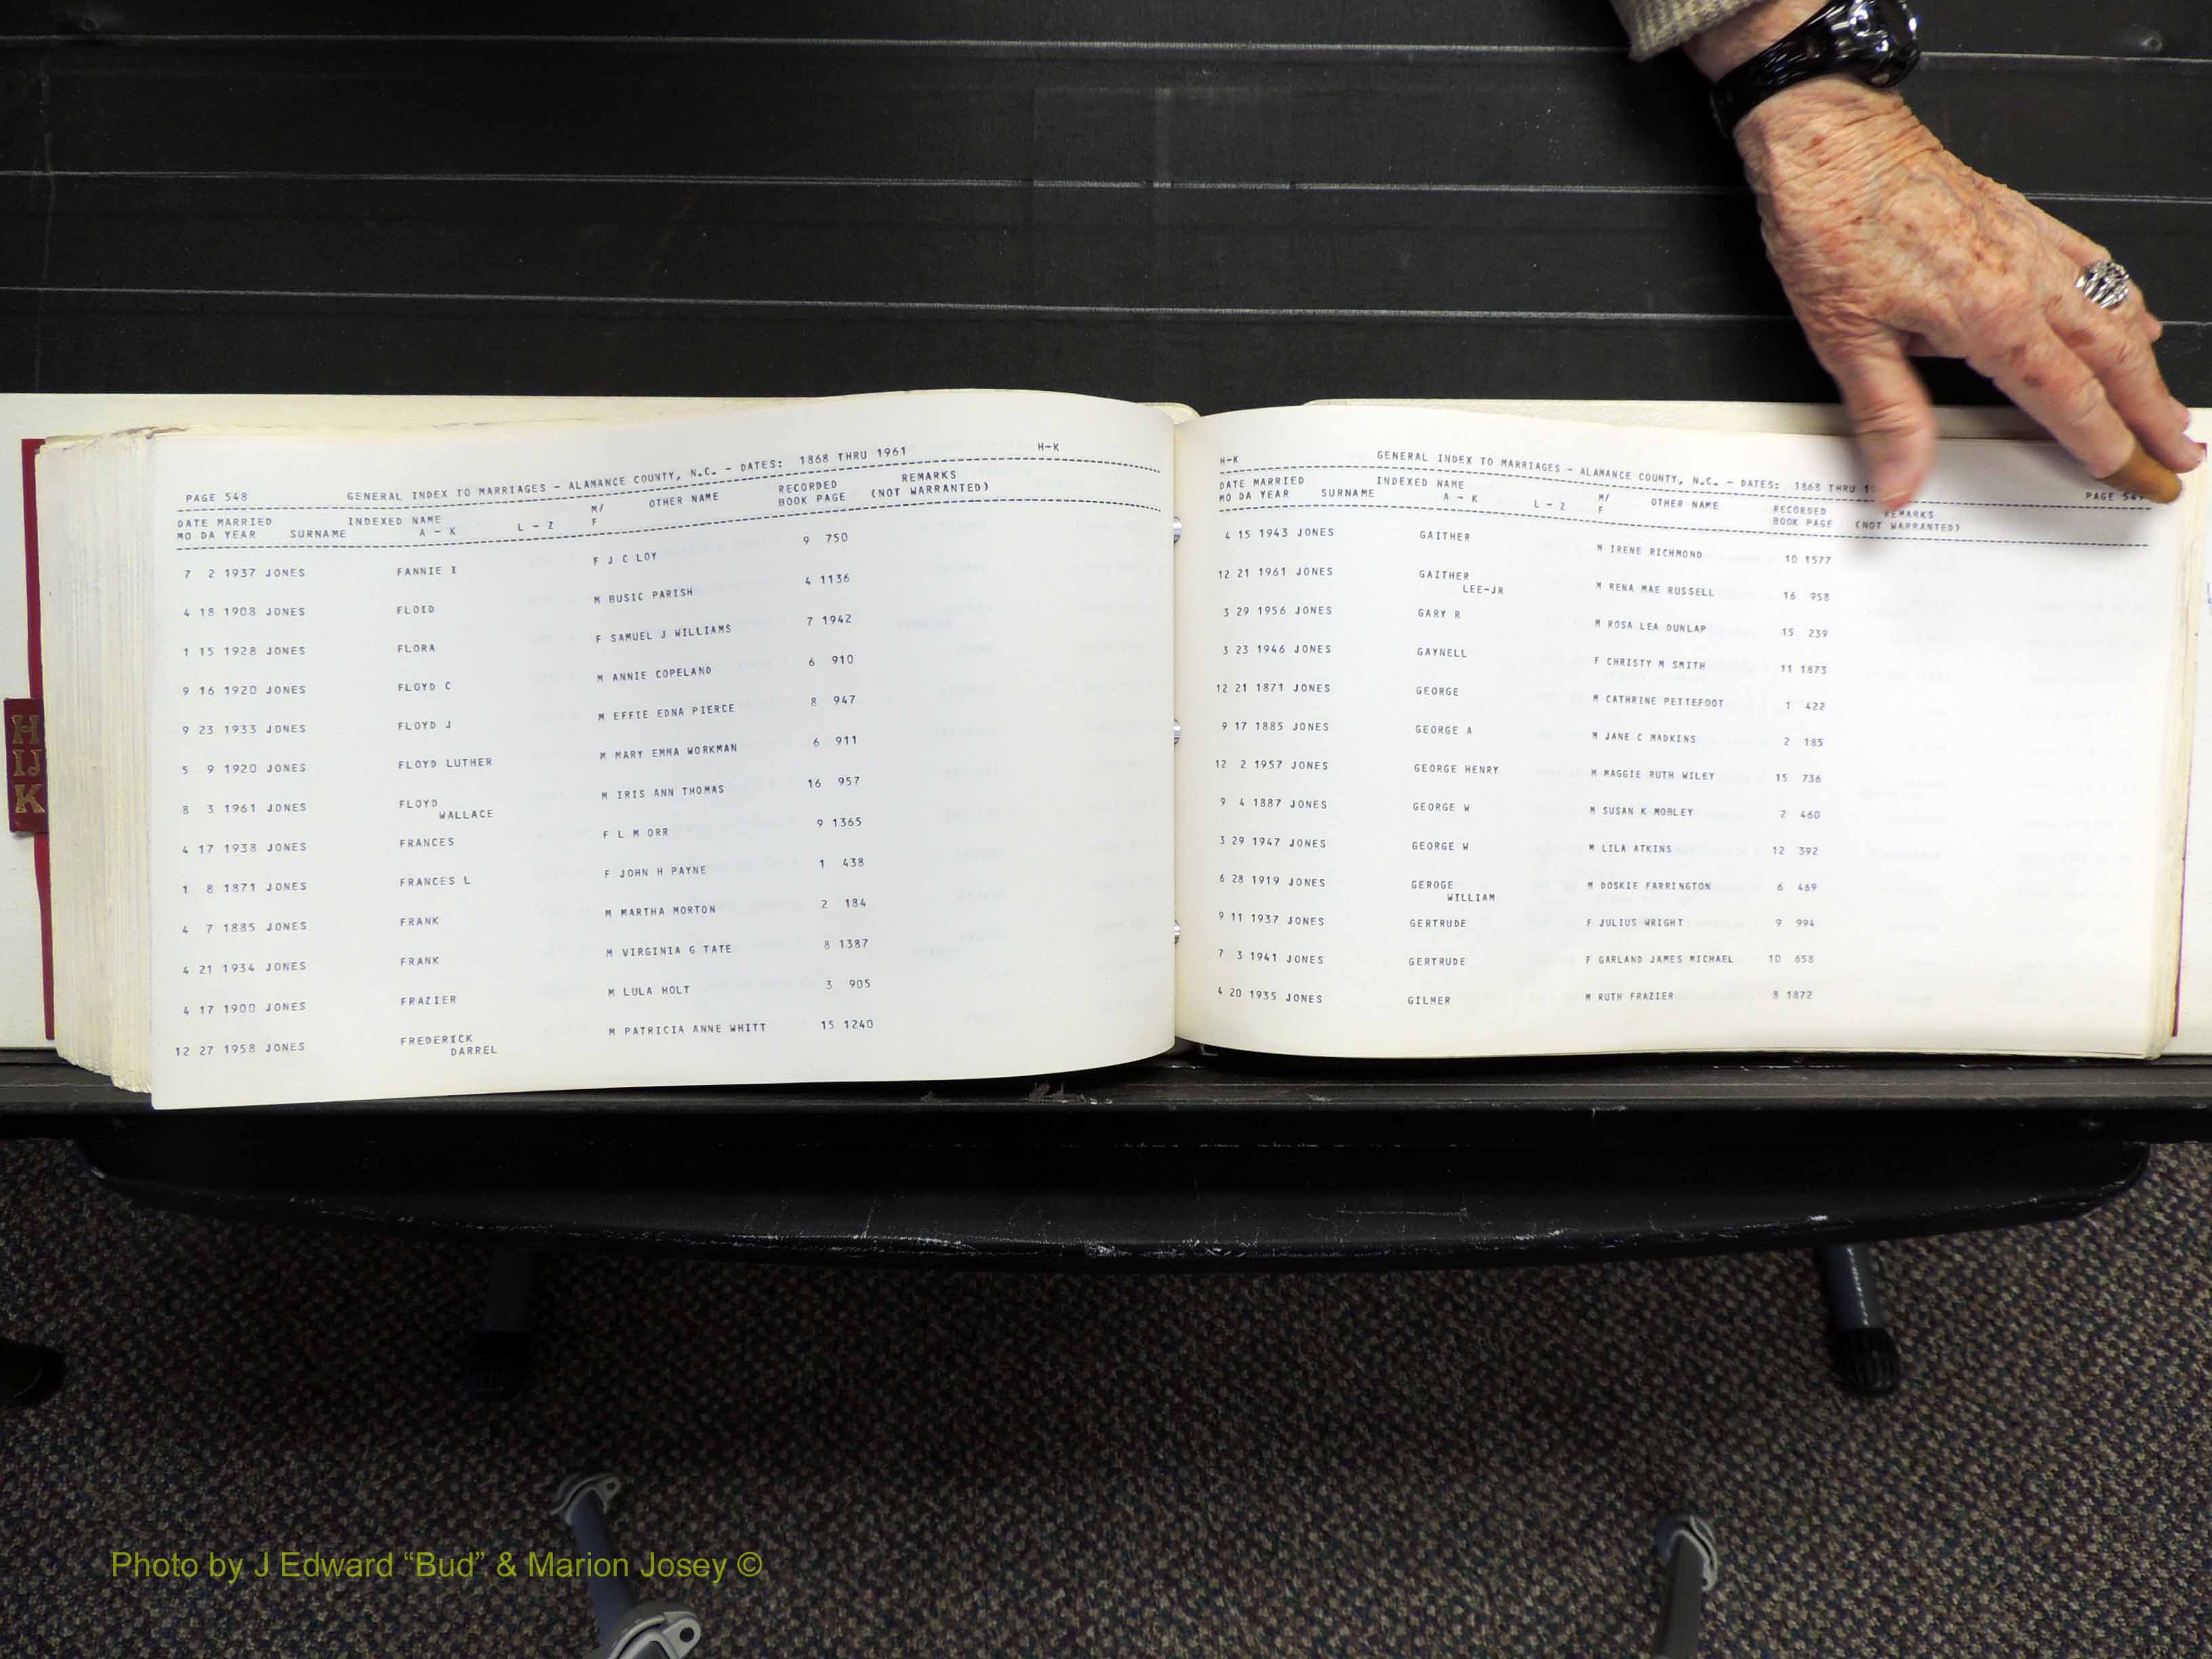 PAGE 548 GENERAL INDEX TO MARRIAGES - ALAMANCE COUNTY, N.C. - DATES: 1868 THRU 1961 H-K
DATE MARRIED INDEXED NAME M/ OTHER NAME RECORDED REMARKS
MO DA YEAR SURNAME A - K L - Z F BOOK PAGE (NOT WARRANTED)
7 2 1937 JONES FANNIE I F J C LOY 9 750
4 18 1908 JONES FLOID M BUSIC PARISH 4 1136
1 15 1928 JONES FLORA F SAMUEL J WILLIAMS 7 1942
9 16 1920 JONES FLOYD C M ANNIE COPELAND 6 910
9 23 1933 JONES FLOYD J M EFFIE EDNA PIERCE 8 947
5 9 1920 JONES FLOYD LUTHER M MARY EMMA WORKMAN 6 911
8 3 1961 JONES FLOYD M IRIS ANN THOMAS 16 957
WALLACE
4 17 1938 JONES FRANCES F L M ORR 9 1365
1 8 1871 JONES FRANCES L F JOHN H PAYNE 1 438
4 7 1885 JONES FRANK M MARTHA MORTON 2 184
4 21 1934 JONES FRANK M VIRGINIA G TATE 8 1387
4 17 1900 JONES FRAZIER M LULA HOLT 3 905
12 27 1958 JONES FREDERICK M PATRICIA ANNE WHITT 15 1240
DARREL
H-K GENERAL INDEX TO MARRIAGES - ALAMANCE COUNTY, N.C. - DATES: 1868 THRU PAGE
DATE MARRIED INDEXED NAME M/ OTHER NAME RECORDED REMARKS
MO DA YEAR SURNAME A - K L - Z F BOOK PAGE (NOT WARRANTED)
4 15 1943 JONES GAITHER M IRENE RICHMOND 10 1577
12 21 1961 JONES GAITHER M RENA MAE RUSSELL 16 958
LEE-JR
3 29 1956 JONES GARY R M ROSA LEA DUNLAP 15 239
3 23 1946 JONES GAYNELL F CHRISTY M SMITH 11 1873
12 21 1871 JONES GEORGE M CATHRINE PETTEFOOT 1 422
9 17 1885 JONES GEORGE A M JANE C MADKINS 2 185
12 2 1957 JONES GEORGE HENRY M MAGGIE RUTH WILEY 15 736
9 4 1887 JONES GEORGE W M SUSAN K MOBLEY 2 460
3 29 1947 JONES GEORGE W M LILA ATKINS 12 392
6 28 1919 JONES GEROGE M DOSKIE FARRINGTON 6 469
WILLIAM
9 11 1937 JONES GERTRUDE F JULIUS WRIGHT 9 994
7 3 1941 JONES GERTRUDE F GARLAND JAMES MICHAEL 10 658
4 20 1935 JONES GILMER M RUTH FRAZIER 8 1872
H
IJ
K
Photo by J Edward “Bud” & Marion Josey ©